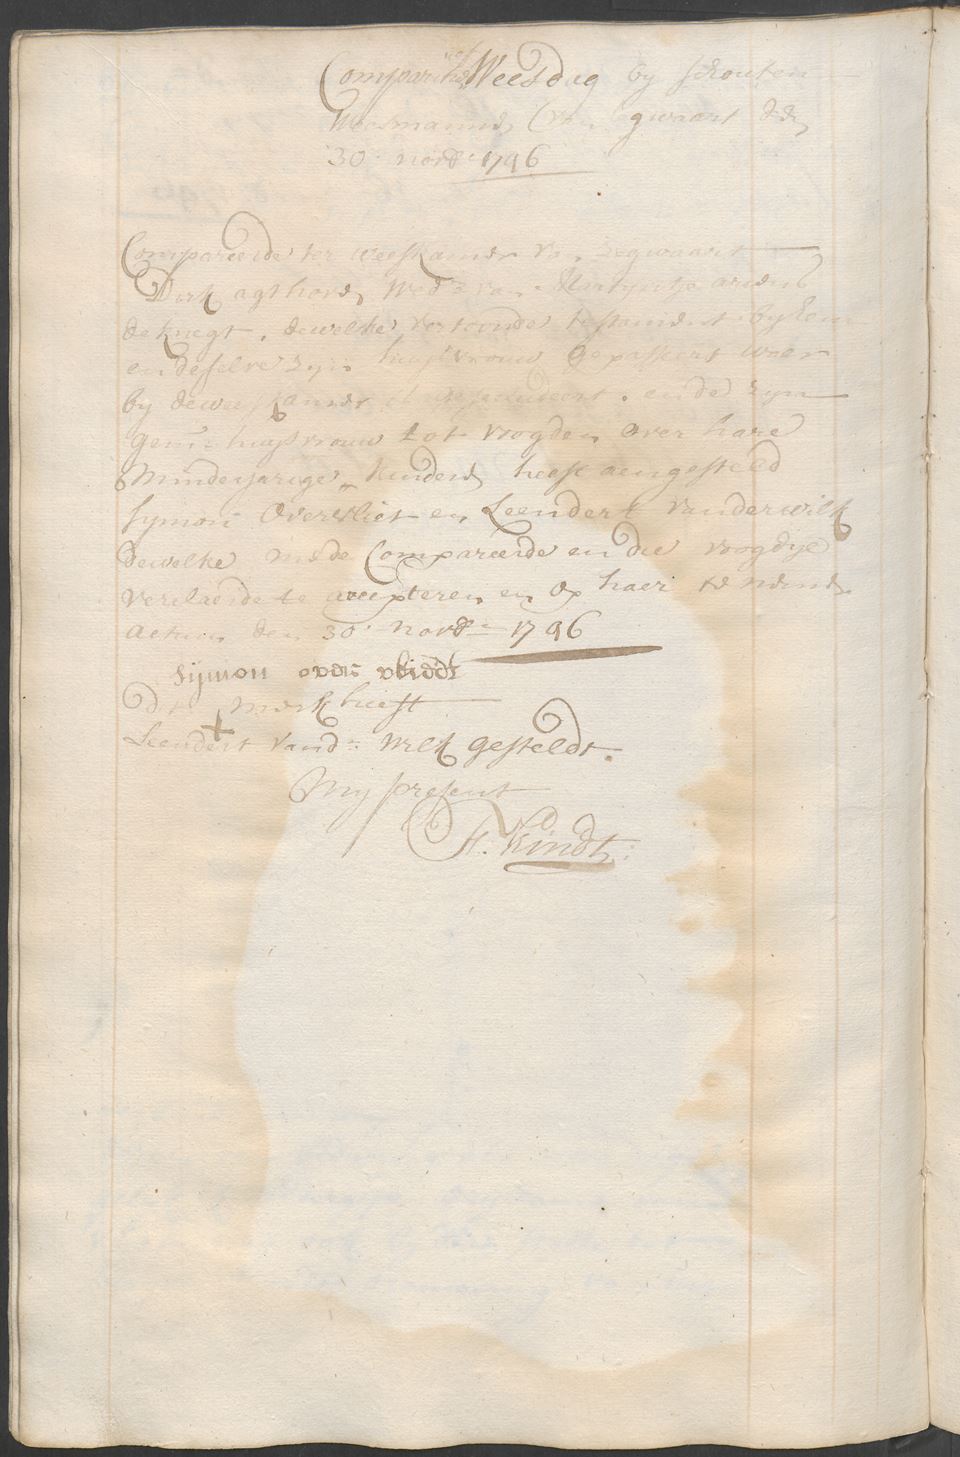 Comparitie of Weesdag by schouten
Weesmannen van Segwaart den
30: novbr: 1746
Compareerde ter weeskamer van Zegwaart
Dirk agthoven Wedr. van Martyntje ariens
de knegt, dewelke vertoonde testament by hem
en deselve zyn huysvrouw gepasseert waer
by de weeskamer is geseludeert, ende zyn
gem: huysvrouw tot voogden over hare
Minderjarige kinderen heeft aengesteld
Symon Overvliet en Leendert vanderwilk
dewelke mede Compareerde en die voogdye
verclaerde te accepteren en op haer te nemen
actum den 30: novbr: 1746
sijmon over vliedt
Dit merk heeft
Leendert vandr: Wilk gesteldt.
My present
H. Kindt: